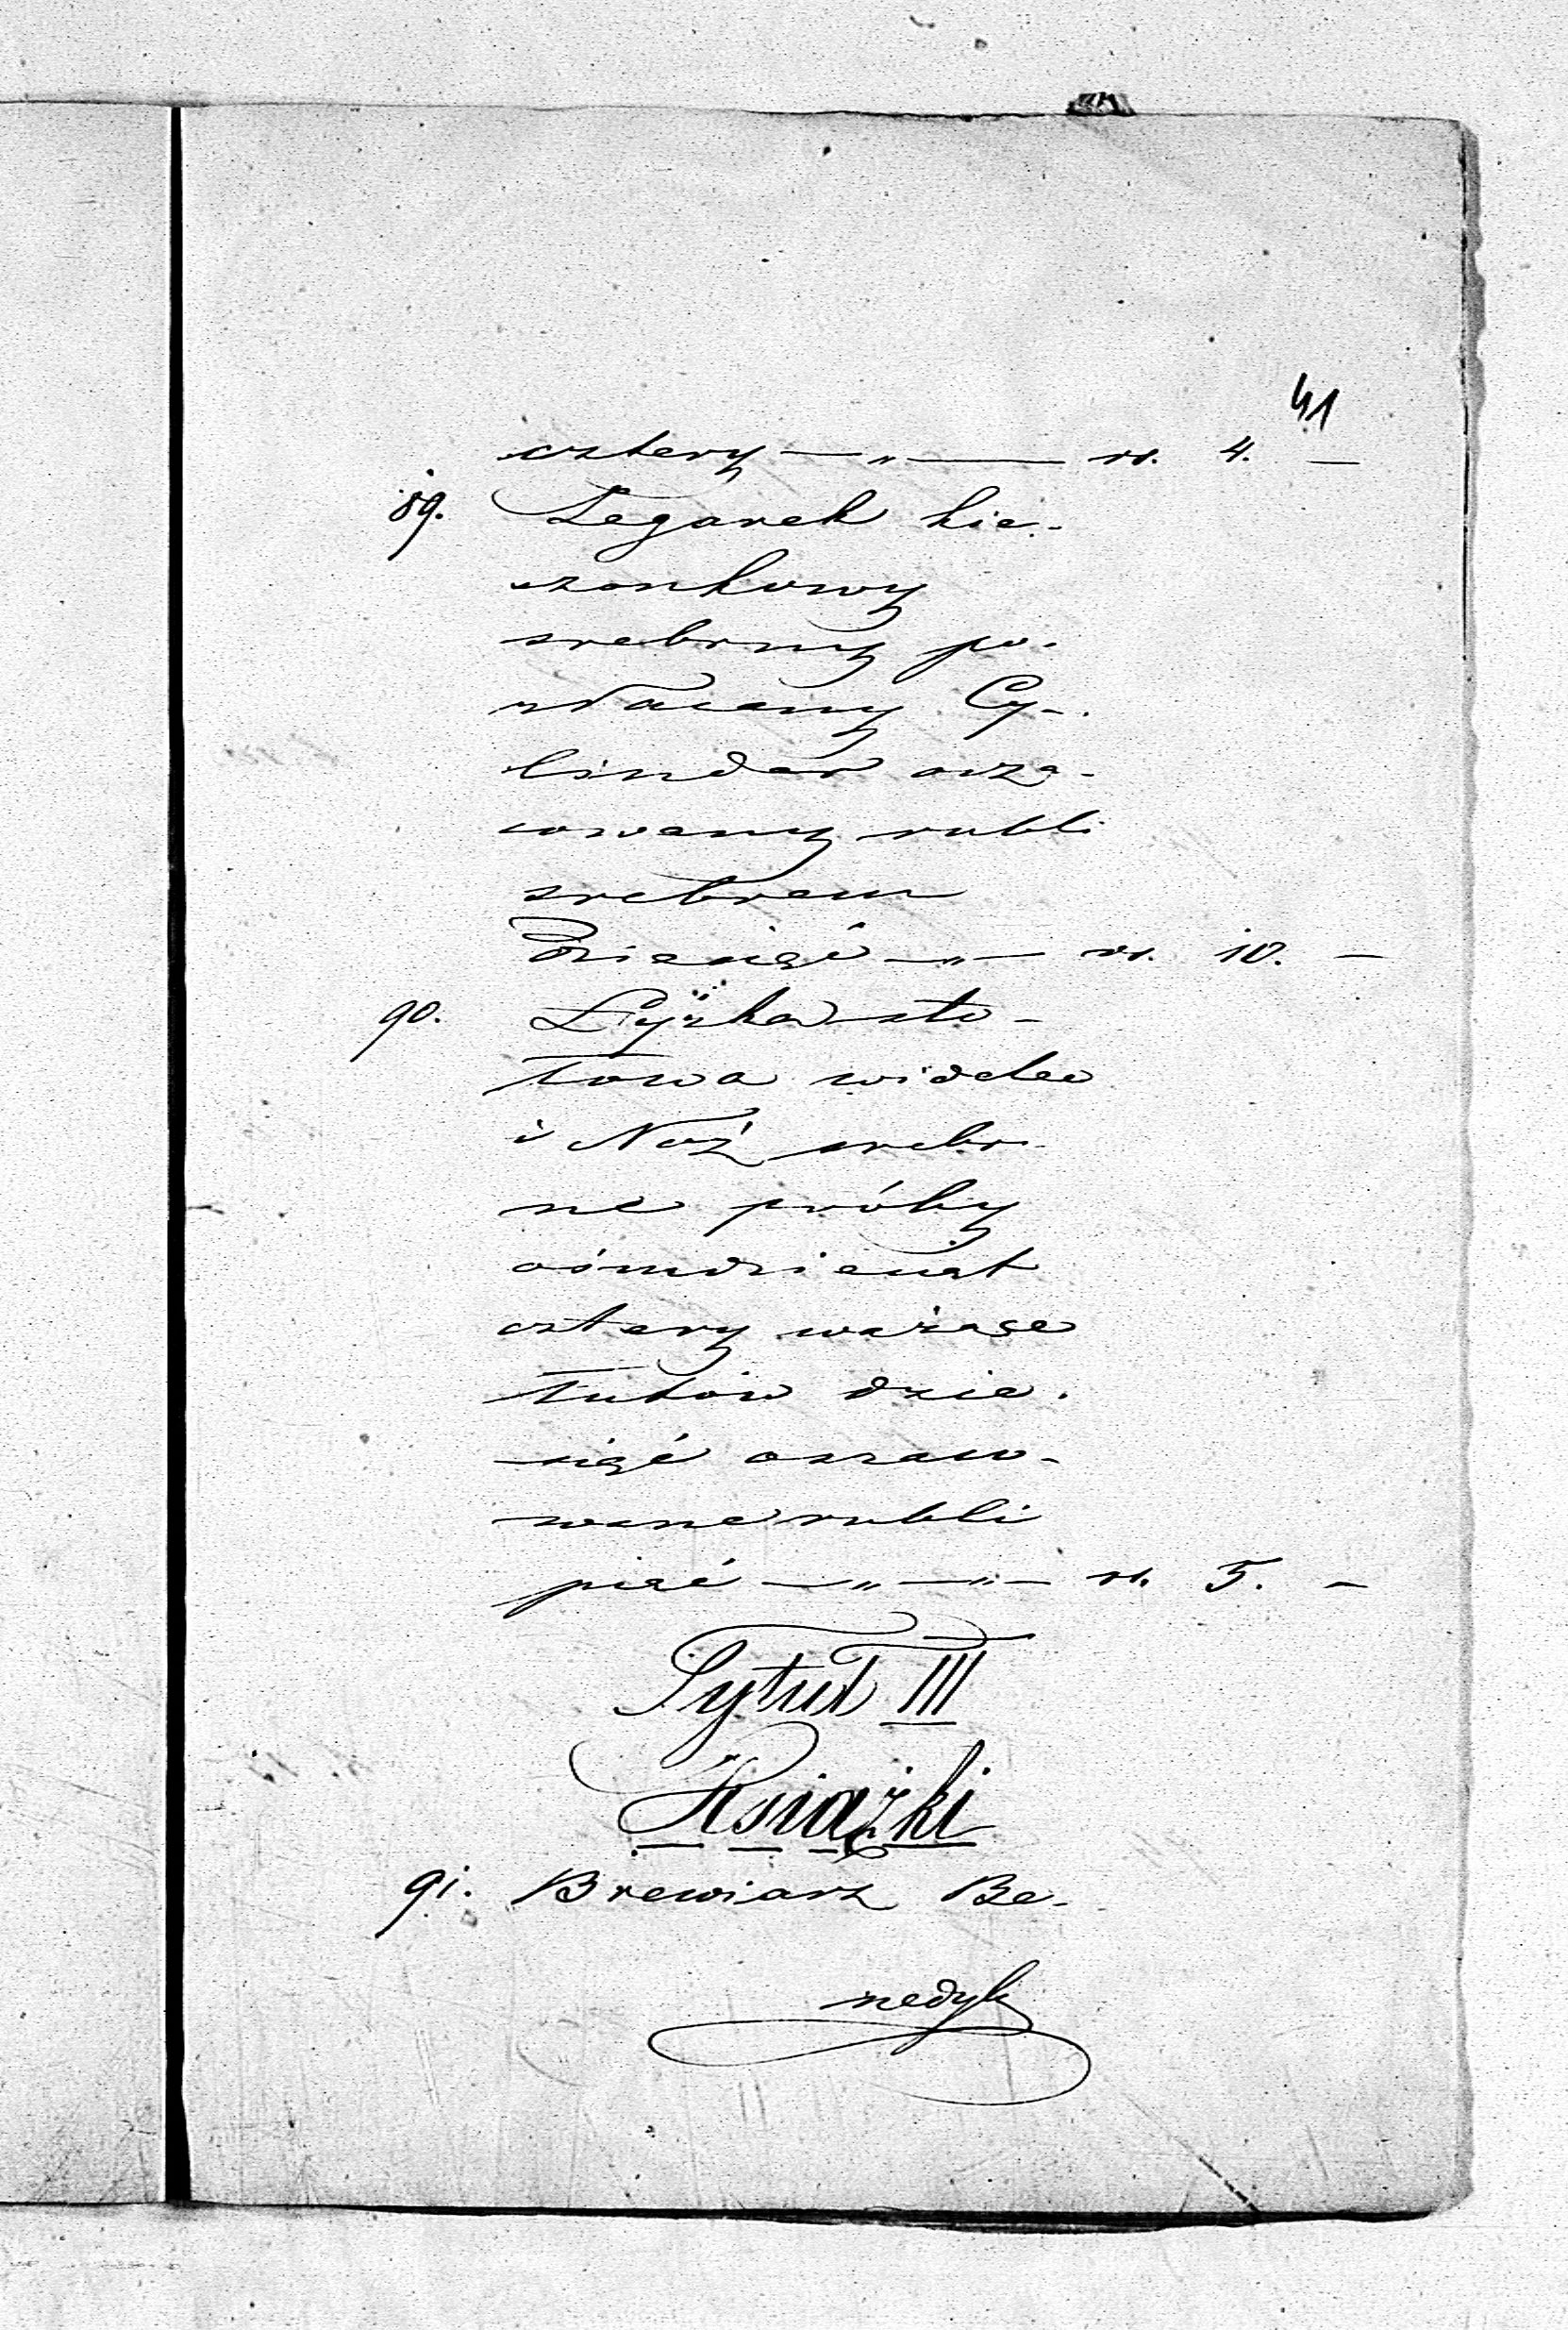 41
cztery —„— rs. 4. —
89. Zegarek kie-
szonkowy
srebrny po-
złacany Cy-
linder osza-
cowany rubli
srebrem
Dziesięć —„— rs. 10. —
90. Łyżka sto-
łowa widelec
i Nóż srebr-
ne próby
ośmdziesiąt
cztery ważące
łutów dzie-
sięć oszaco-
wane rubli
pięć —„—„— rs. 5. —
Tytuł III
Książki
91. Brewiarz Be-
nedyk